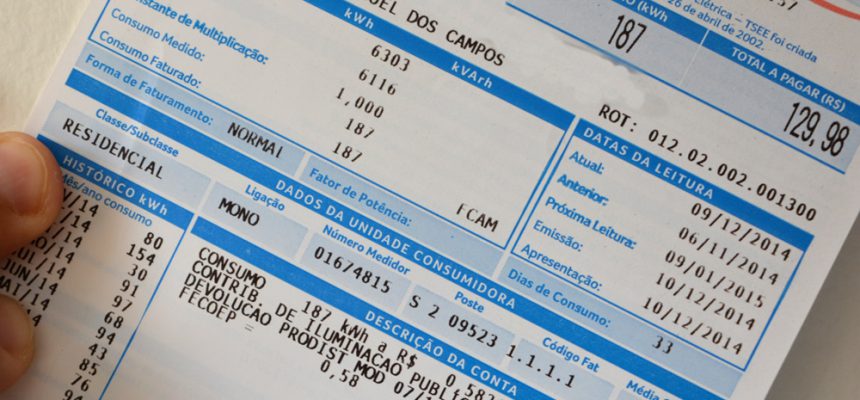 Elétrica – TSEE foi criada
26 de abril de 2002.
(kWh
187
TOTAL A PAGAR (R$)
129,98
DOS CAMPOS
kWh
kVArh
6303
6116
Constante de Multiplicação:
1,000
Consumo Medido:
187
Consumo Faturado:
187
Forma de Faturamento:
NORMAL
Fator de Potência:
FCAM
ROT: 012.02.002.001300
DATAS DA LEITURA
Atual:
09/12/2014
Anterior:
06/11/2014
Próxima Leitura:
09/01/2015
Emissão:
10/12/2014
Apresentação:
10/12/2014
Dias de Consumo:
33
Classe/Subclasse
RESIDENCIAL
DADOS DA UNIDADE CONSUMIDORA
Ligação
MONO
Número Medidor
01674815
Poste
S 2 09523
Código Fat
1.1.1.1
Média
HISTÓRICO kWh
Mês/ano consumo
/14 80
/14 154
/14 30
/14 91
JUN/14 97
MAI/14 68
94
43
85
76
94
DESCRIÇÃO DA CONTA
CONSUMO 187 kWh a R$ 0,582
CONTRIB. DE ILUMINACAO PUBLIC
DEVOLUCAO PRODIST MOD 07/1
FECOEP = 0,58